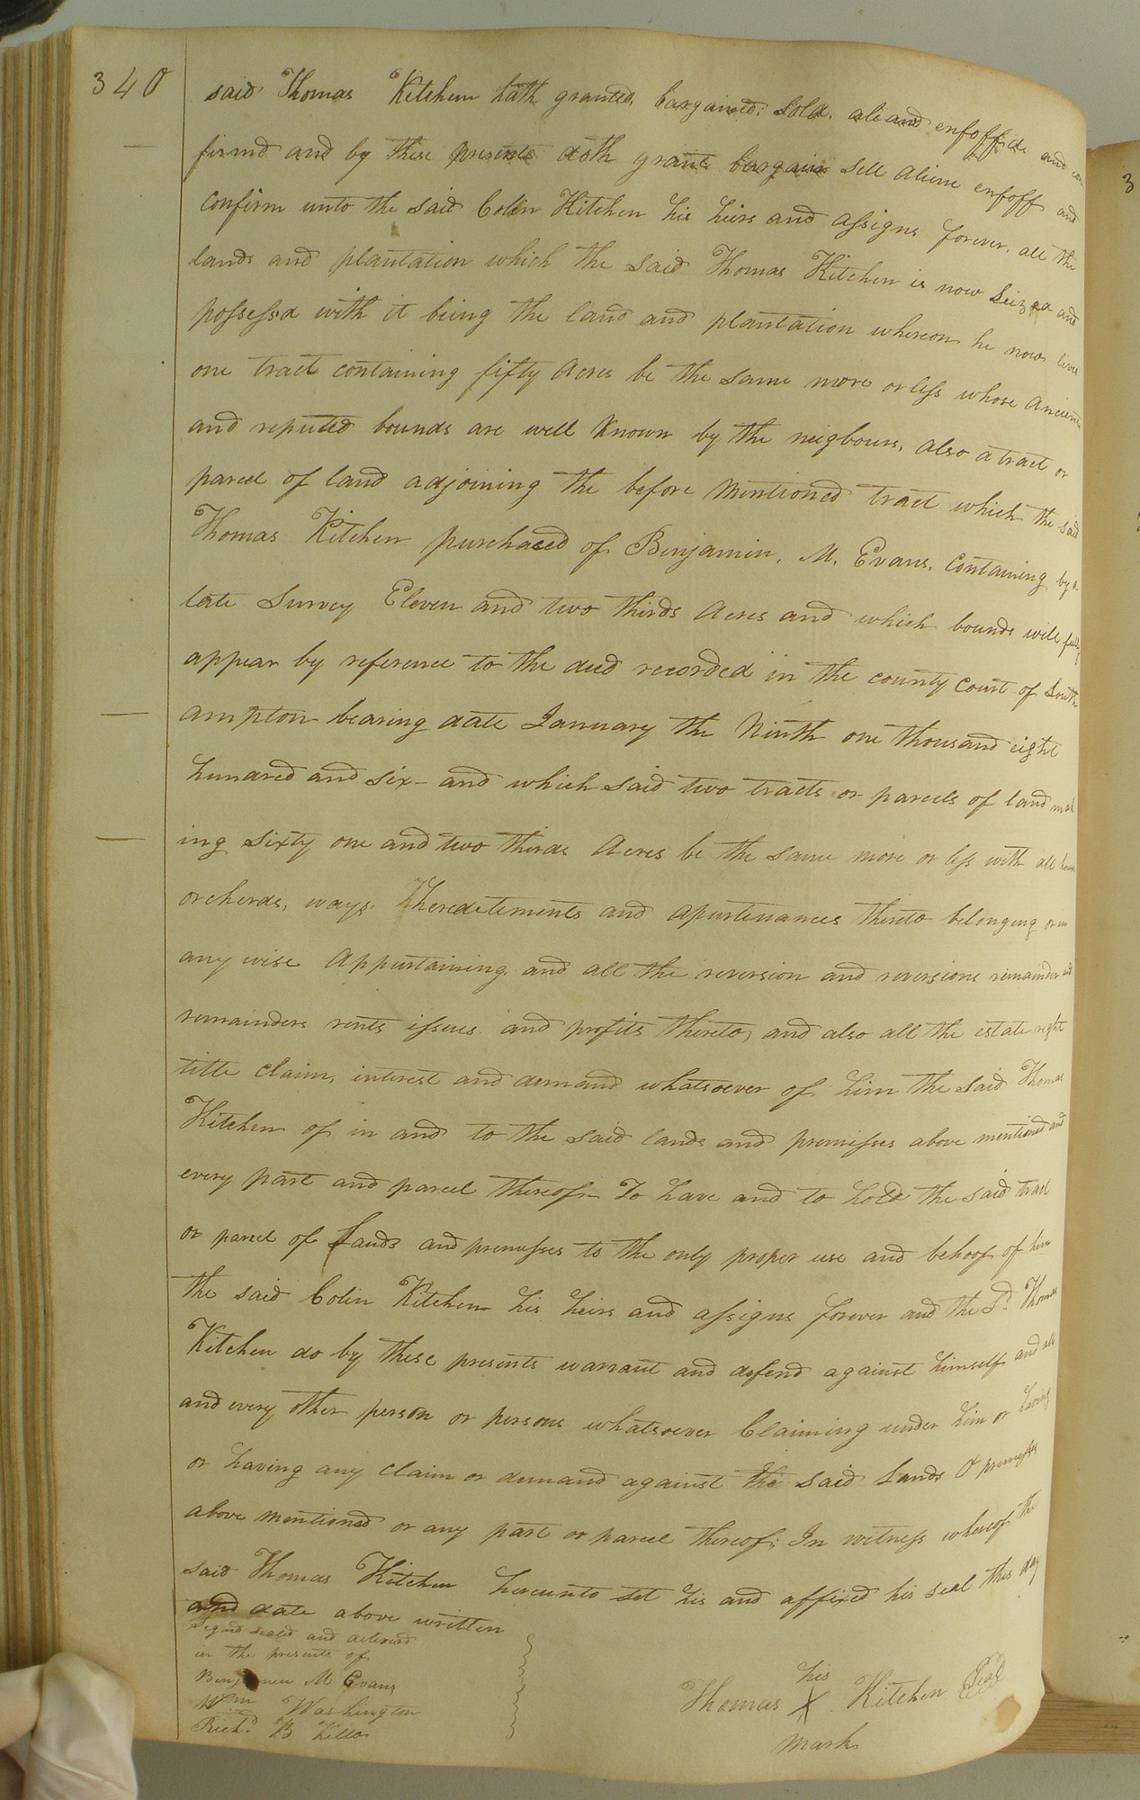 340
said Thomas Kitchen hath granted, bargained; sold. aliand enfoffide and con
firmd and by these presents doth grant bargain Sell aliene enfoff and
confirm unto the said Colin Kitchen his heirs and assigns forever. all the
lands and plantation which the said Thomas Kitchen is now Seizd and
possessd with it being the land and plantation whereon he now lives
one tract containing fifty Acres be the same more or less whose ancient
and reputed bounds are well known by the neigbours, also a tract or
parcel of land adjoining the before mentioned tract which the said
Thomas Kitchen purchased of Benjamin. M. Evans. Containing by a
late Survey Eleven and two thirds Acres and which bounds will fully
appear by reference to the deed recorded in the county court of South
ampton bearing date January the Ninth one thousand eight
hundred and six - and which said two tracts or parcels of land mak
ing Sixty one and two thirds Acres be the same more or less with all
orcherds, ways. heredetements and apurtenances thereto belonging or in
any wise Appurtaining and all the reversion and reversions remainder and
remainders rents issues and profits thereto, and also all the estate right
title claim, interest and demand whatsoever of him the said Thomas
Kitchen of in and to the said lands and premisses above mentioned and
every part and parcel thereof - To have and to hold the said tract
or parcel of Lands and premisses to the only proper use and behoof of him
the said Colin Kitchen his heirs and assigns forever and the Sd. Thomas
Kitchen do by these presents warrant and defend against himself and all
and every other person or persons whatsoever Claiming under him or having
or having any claim or demand against the said Lands & premisses
above mentioned or any part or parcel thereof; In witness whereof the
said Thomas Kitchen hereunto set his and affixed his seal this day
and date above written
Signd seald and deliverd
in the presents of
Benjamin M Evans
Wm Washington
Richd. B
his
Thomas X Kitchen Seal
mark